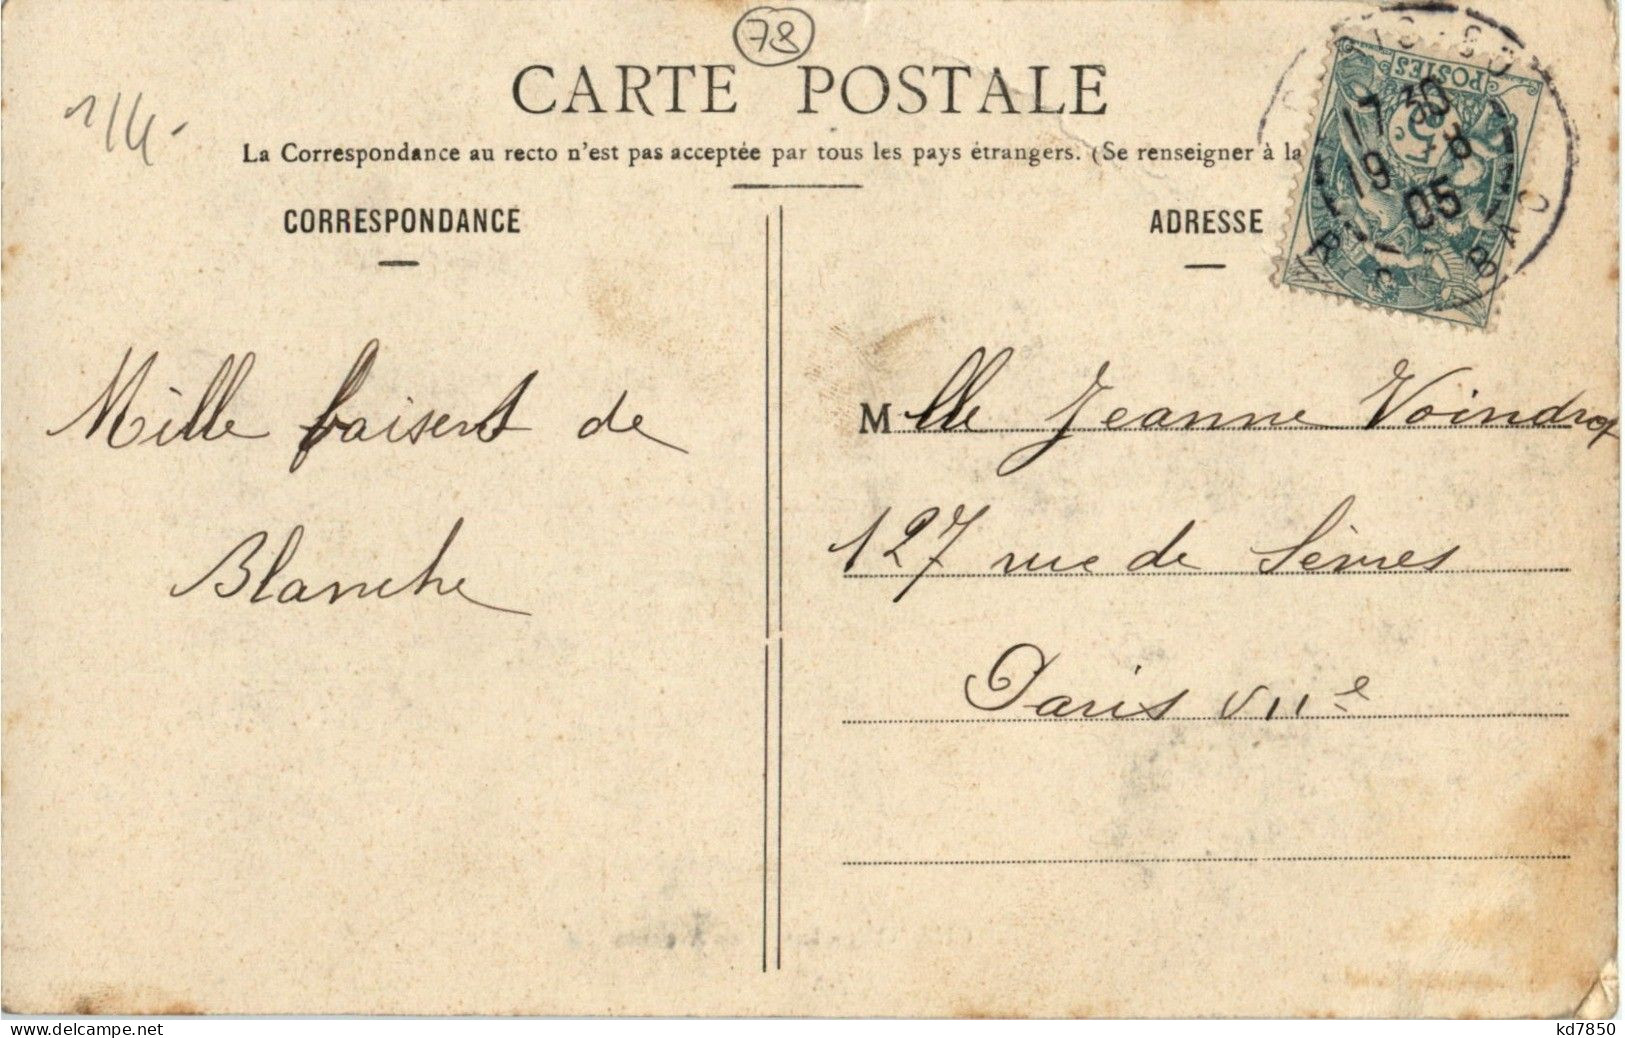 78
1/4-
CARTE POSTALE
La Correspondance au recto n'est pas acceptée par tous les pays étrangers. (Se renseigner à la
POSTES
5c
17 30
19 8
05
BAC
CORRESPONDANCE
ADRESSE
Mille baisers de
Blanche
Mlle Jeanne Voindrot
127 rue de Sèvres
Paris VIIe
delcampe.net
kd7850